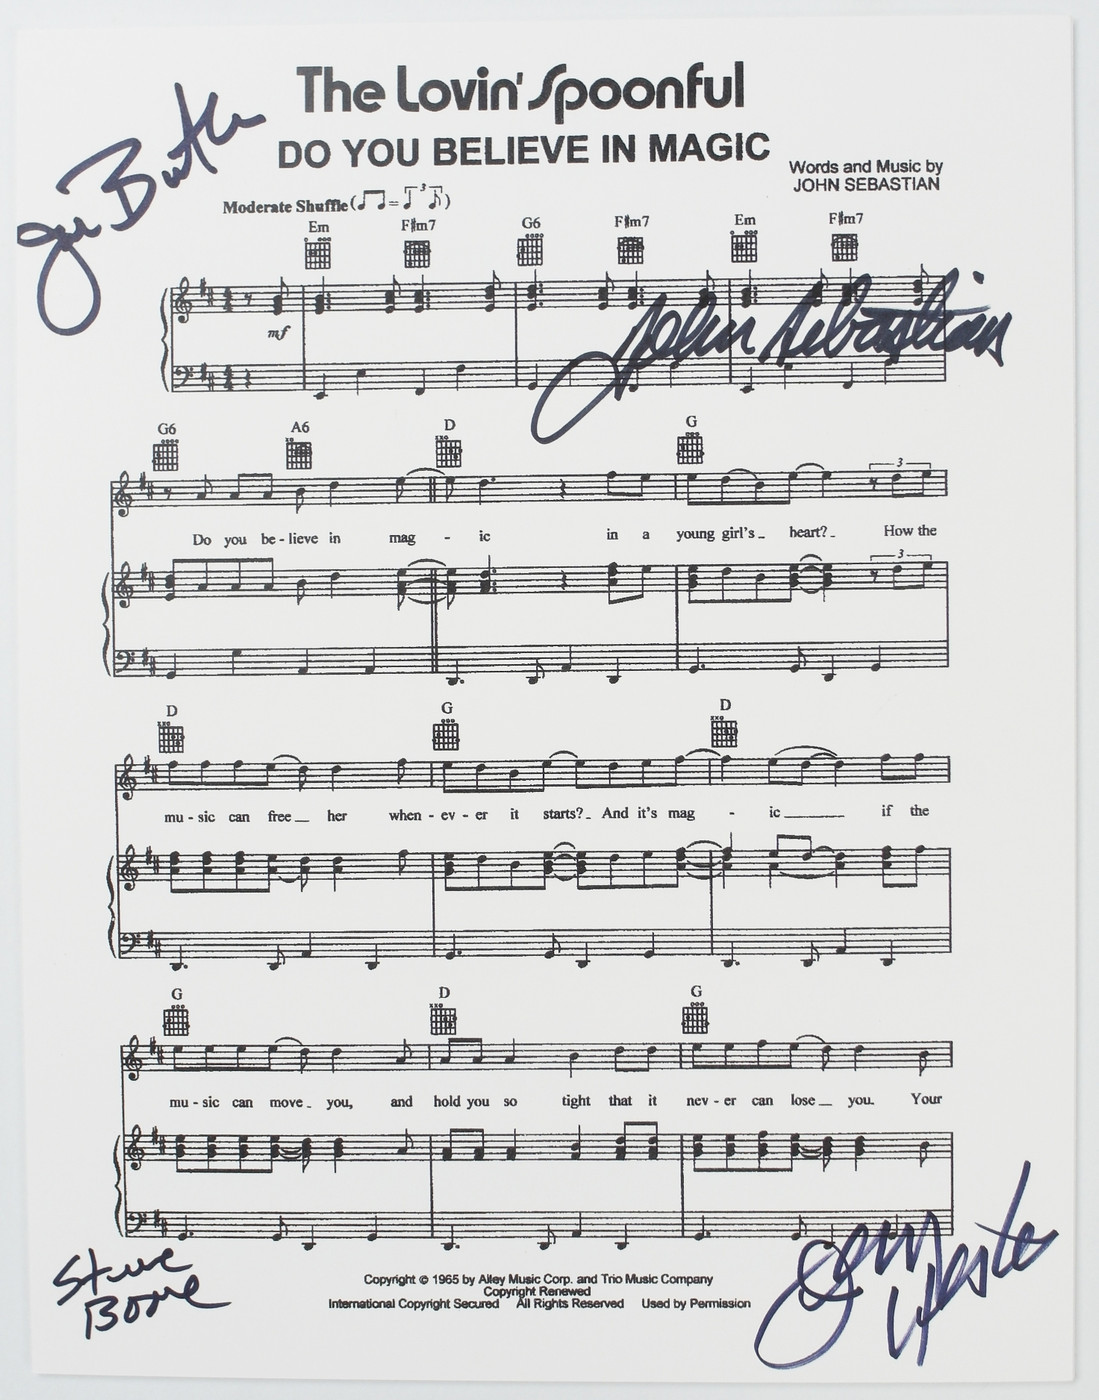 The Lovin' Spoonful
DO YOU BELIEVE IN MAGIC
Words and Music by
JOHN SEBASTIAN
Joe Butler
Moderate Shuffle ( = 3 )
Em F#m7 G6 F#m7 Em F#m7
mf
John Sebastian
G6 A6 D G
3
Do you be - lieve in mag - ic in a young girl's _ heart? _ How the
3
D G D
mu - sic can free __ her when - ev - er it starts? _ And it's mag - ic ____ if the
G D G
mu - sic can move _ you, and hold you so tight that it nev - er can lose __ you. Your
Steve
Boone
Jerry
Yester
Copyright © 1965 by Alley Music Corp. and Trio Music Company
Copyright Renewed
International Copyright Secured All Rights Reserved Used by Permission